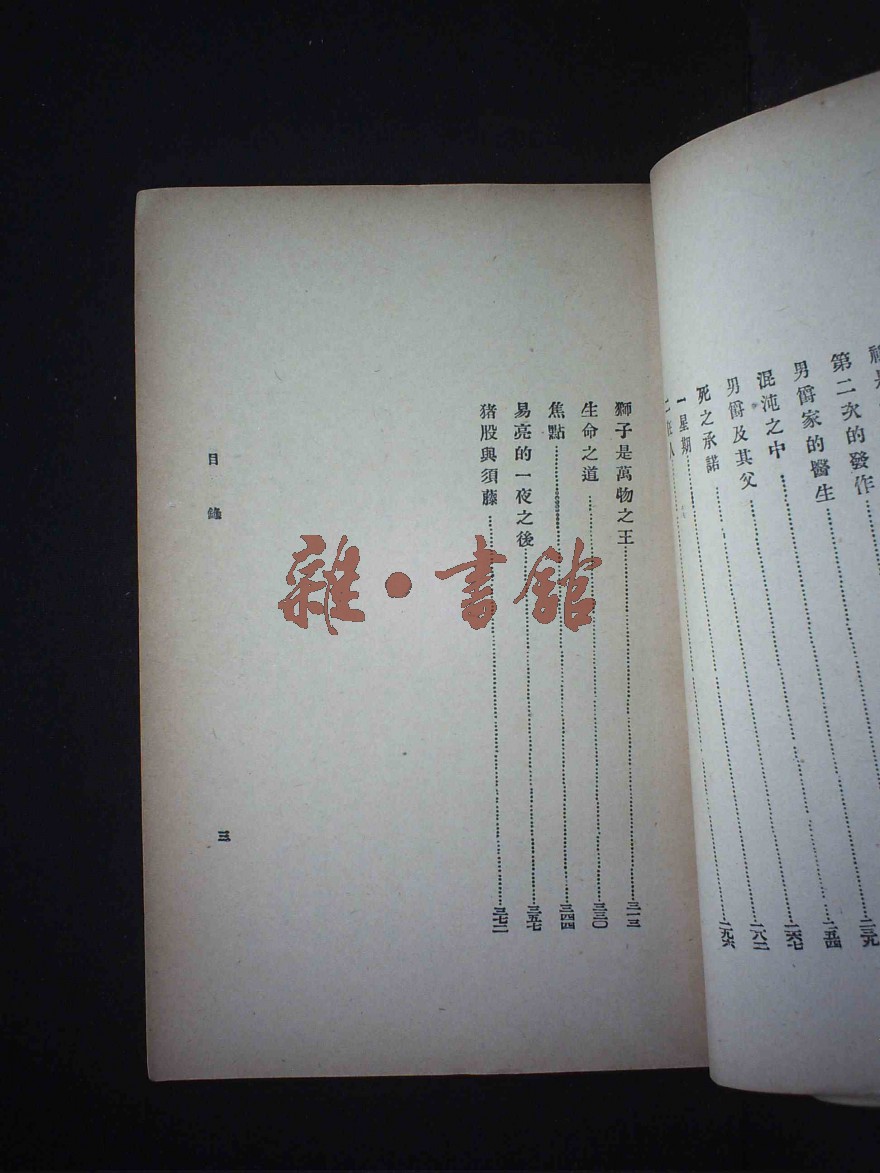 第二次的發作……二三九
男爵家的醫生……二五四
混沌之中……二六七
男爵及其父……二八二
死之承諾……二九六
一星期
獅子是萬物之王……三一三
生命之道……三三〇
焦點……三四四
易亮的一夜之後……三五七
猪股與須藤……三七二
目錄
三
雜·書館